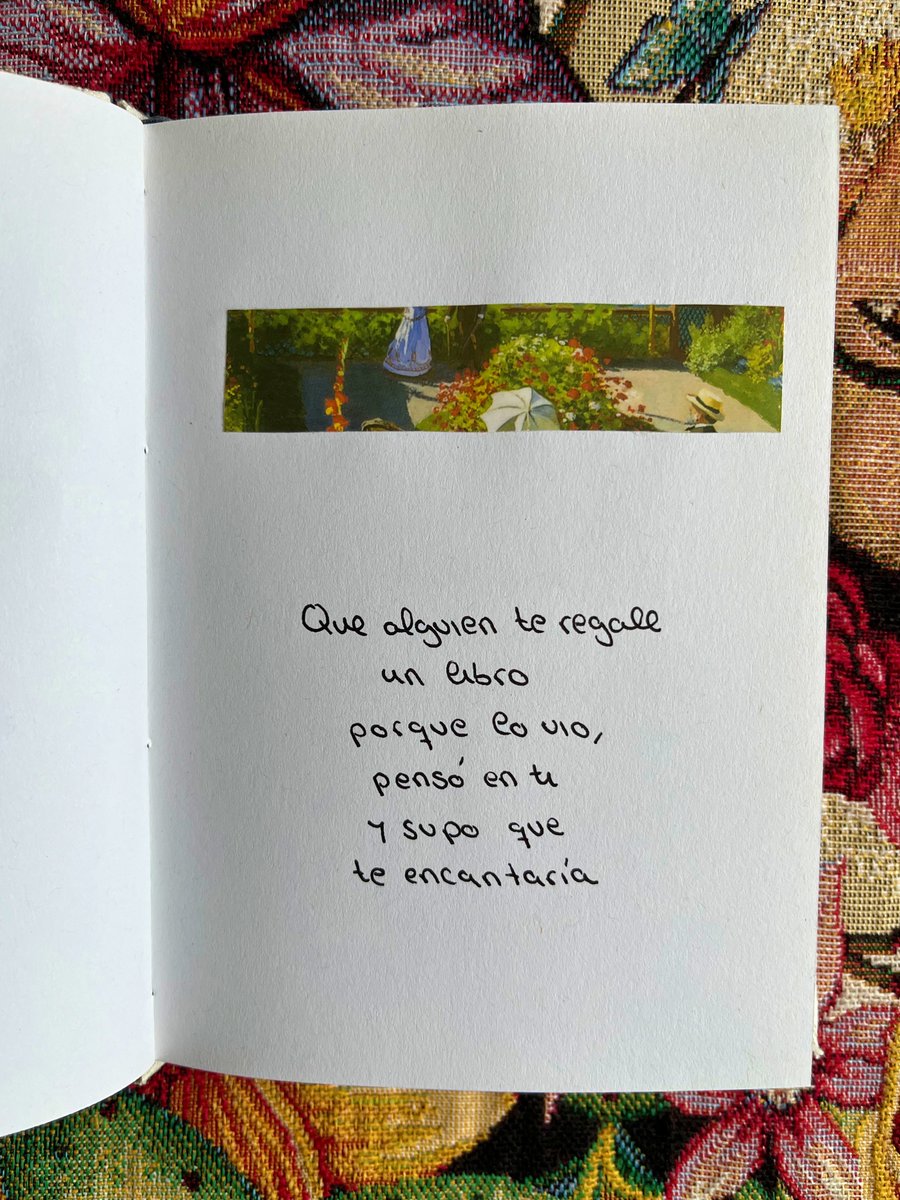 Que alguien te regale
un libro
porque lo vio,
pensó en ti
y supo que
te encantaría